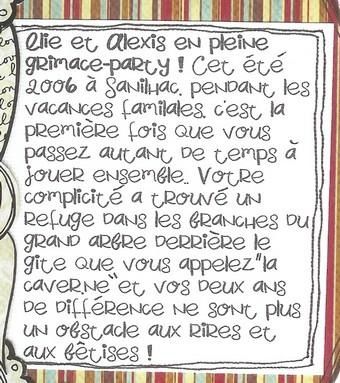 Elie et Alexis en pleine
grimace-party ! Cet été
2006 à Sanilhac, pendant les
vacances familales, c'est la
première fois que vous
passez autant de temps à
jouer ensemble.. Votre
complicité a trouvé un
refuge dans les branches du
grand arbre derrière le
gite que vous appelez "la
caverne" et vos deux ans
de différence ne sont plus
un obstacle aux rires et
aux bêtises !